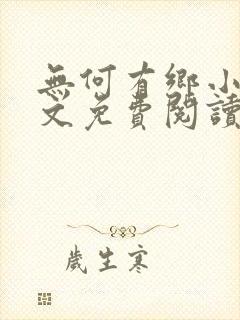 無何有鄉小
文免費閱讀
歲生寒